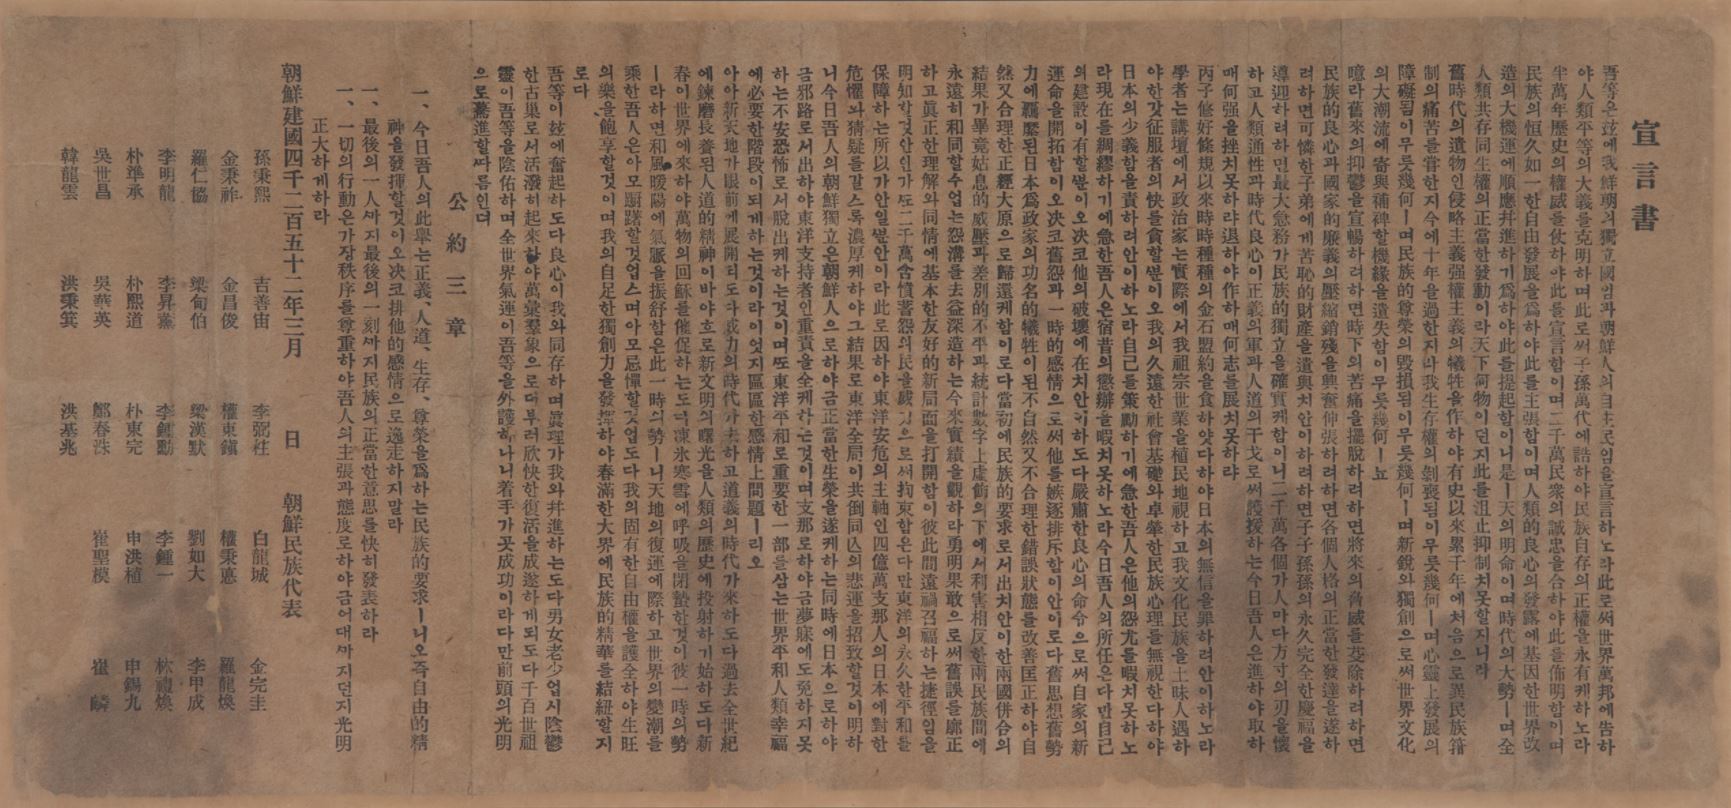 宣言書
吾等은玆에我鮮朝의獨立國임과朝鮮人의自主民임을宣言하노라此로써世界萬邦에告하
야人類平等의大義를克明하며此로써子孫萬代에誥하야民族自存의正權을永有케하노라
半萬年歷史의權威를仗하야此를宣言함이며二千萬民衆의誠忠을合하야此를佈明함이며
民族의恒久如一한自由發展을爲하야此를主張함이며人類的良心의發露에基因한世界改
造의大機運에順應幷進하기爲하야此를提起함이니是ㅣ天의明命이며時代의大勢ㅣ며全
人類共存同生權의正當한發動이라天下何物이던지此를沮止抑制치못할지니라
舊時代의遺物인侵略主義强權主義의犧牲을作하야有史以來累千年에처음으로異民族箝
制의痛苦를嘗한지今에十年을過한지라我生存權의剝喪됨이무릇幾何ㅣ며心靈上發展의
障礙됨이무릇幾何ㅣ며民族的尊榮의毁損됨이무릇幾何ㅣ며新銳와獨創으로써世界文化
의大潮流에寄與補裨할機緣을遺失함이무릇幾何ㅣ뇨
噫라舊來의抑鬱을宣暢하려하면時下의苦痛을擺脫하려하면將來의脅威를芟除하려하면
民族的良心과國家的廉義의壓縮銷殘을興奮伸張하려하면各個人格의正當한發達을遂하
려하면可憐한子弟에게苦恥的財産을遺與치안이하려하면子子孫孫의永久完全한慶福을
導迎하려하면最大急務가民族的獨立을確實케함이니二千萬各個가人마다方寸의刃을懷
하고人類通性과時代良心이正義의軍과人道의干戈로써護援하는今日吾人은進하야取하
매何强을挫치못하랴退하야作하매何志를展치못하랴
丙子修好條規以來時時種種의金石盟約을食하얏다하야日本의無信을罪하려안이하노라
學者는講壇에서政治家는實際에서我祖宗世業을植民地視하고我文化民族을土昧人遇하
야한갓征服者의快를貪할뿐이오我의久遠한社會基礎와卓犖한民族心理를無視한다하야
日本의少義함을責하려안이하노라自己를策勵하기에急한吾人은他의怨尤를暇치못하노
라現在를綢繆하기에急한吾人은宿昔의懲辦을暇치못하노라今日吾人의所任은다만自己
의建設이有할뿐이오決코他의破壞에在치안이하도다嚴肅한良心의命令으로써自家의新
運命을開拓함이오決코舊怨과一時的感情으로써他를嫉逐排斥함이안이로다舊思想舊勢
力에羈縻된日本爲政家의功名的犧牲이된不自然又不合理한錯誤狀態를改善匡正하야自
然又合理한正經大原으로歸還케함이로다當初에民族的要求로서出치안이한兩國併合의
結果가畢竟姑息的威壓과差別的不平과統計數字上虛飾의下에서利害相反한兩民族間에
永遠히和同할수업는怨溝를去益深造하는今來實績을觀하라勇明果敢으로써舊誤를廓正
하고眞正한理解와同情에基本한友好的新局面을打開함이彼此間遠禍召福하는捷徑임을
明知할것안인가또二千萬含憤蓄怨의民을威力으로써拘束함은다만東洋의永久한平和를
保障하는所以가안일뿐안이라此로因하야東洋安危의主軸인四億萬支那人의日本에對한
危懼와猜疑를갈스록濃厚케하야그結果로東洋全局이共倒同亡의悲運을招致할것이明하
니今日吾人의朝鮮獨立은朝鮮人으로하야금正當한生榮을遂케하는同時에日本으로하야
금邪路로서出하야東洋支持者인重責을全케하는것이며支那로하야금夢寐에도免하지못
하는不安恐怖로서脫出케하는것이며또東洋平和로重要한一部를삼는世界平和人類幸福
에必要한階段이되게하는것이라이엇지區區한感情上問題ㅣ리오
아아新天地가眼前에展開되도다威力의時代가去하고道義의時代가來하도다過去全世紀
에鍊磨長養된人道的精神이바야흐로新文明의曙光을人類의歷史에投射하기始하도다新
春이世界에來하야萬物의回穌를催促하는도다凍氷寒雪에呼吸을閉蟄한것이彼一時의勢
ㅣ라하면和風暖陽에氣脈을振舒함은此一時의勢ㅣ니天地의復運에際하고世界의變潮를
乘한吾人은아모躊躇할것업스며아모忌憚할것업도다我의固有한自由權을護全하야生旺
의樂을飽享할것이며我의自足한獨創力을發揮하야春滿한大界에民族的精華를結紐할지
로다
吾等이玆에奮起하도다良心이我와同存하며眞理가我와幷進하는도다男女老少업시陰鬱
한古巢로서活潑히起來하야萬彙羣象으로더부러欣快한復活을成遂하게되도다千百世祖
靈이吾等을陰佑하며全世界氣運이吾等을外護하나니着手가곳成功이라다만前頭의光明
으로驀進할짜름인뎌
公約三章
一、今日吾人의此擧는正義、人道、生存、尊榮을爲하는民族的要求ㅣ니오즉自由的精
神을發揮할것이오決코排他的感情으로逸走하지말라
一、最後의一人까지最後의一刻까지民族의正當한意思를快히發表하라
一、一切의行動은가장秩序를尊重하야吾人의主張과態度로하야금어대까지던지光明
正大하게하라
朝鮮建國四千二百五十二年三月 日 朝鮮民族代表
孫秉熙 吉善宙 李弼柱 白龍城 金完圭
金秉祚 金昌俊 權東鎭 權秉悳 羅龍煥
羅仁協 梁甸伯 梁漢默 劉如大 李甲成
李明龍 李昇薰 李鍾勳 李鍾一 林禮煥
朴準承 朴熙道 朴東完 申洪植 申錫九
吳世昌 吳華英 鄭春洙 崔聖模 崔麟
韓龍雲 洪秉箕 洪基兆